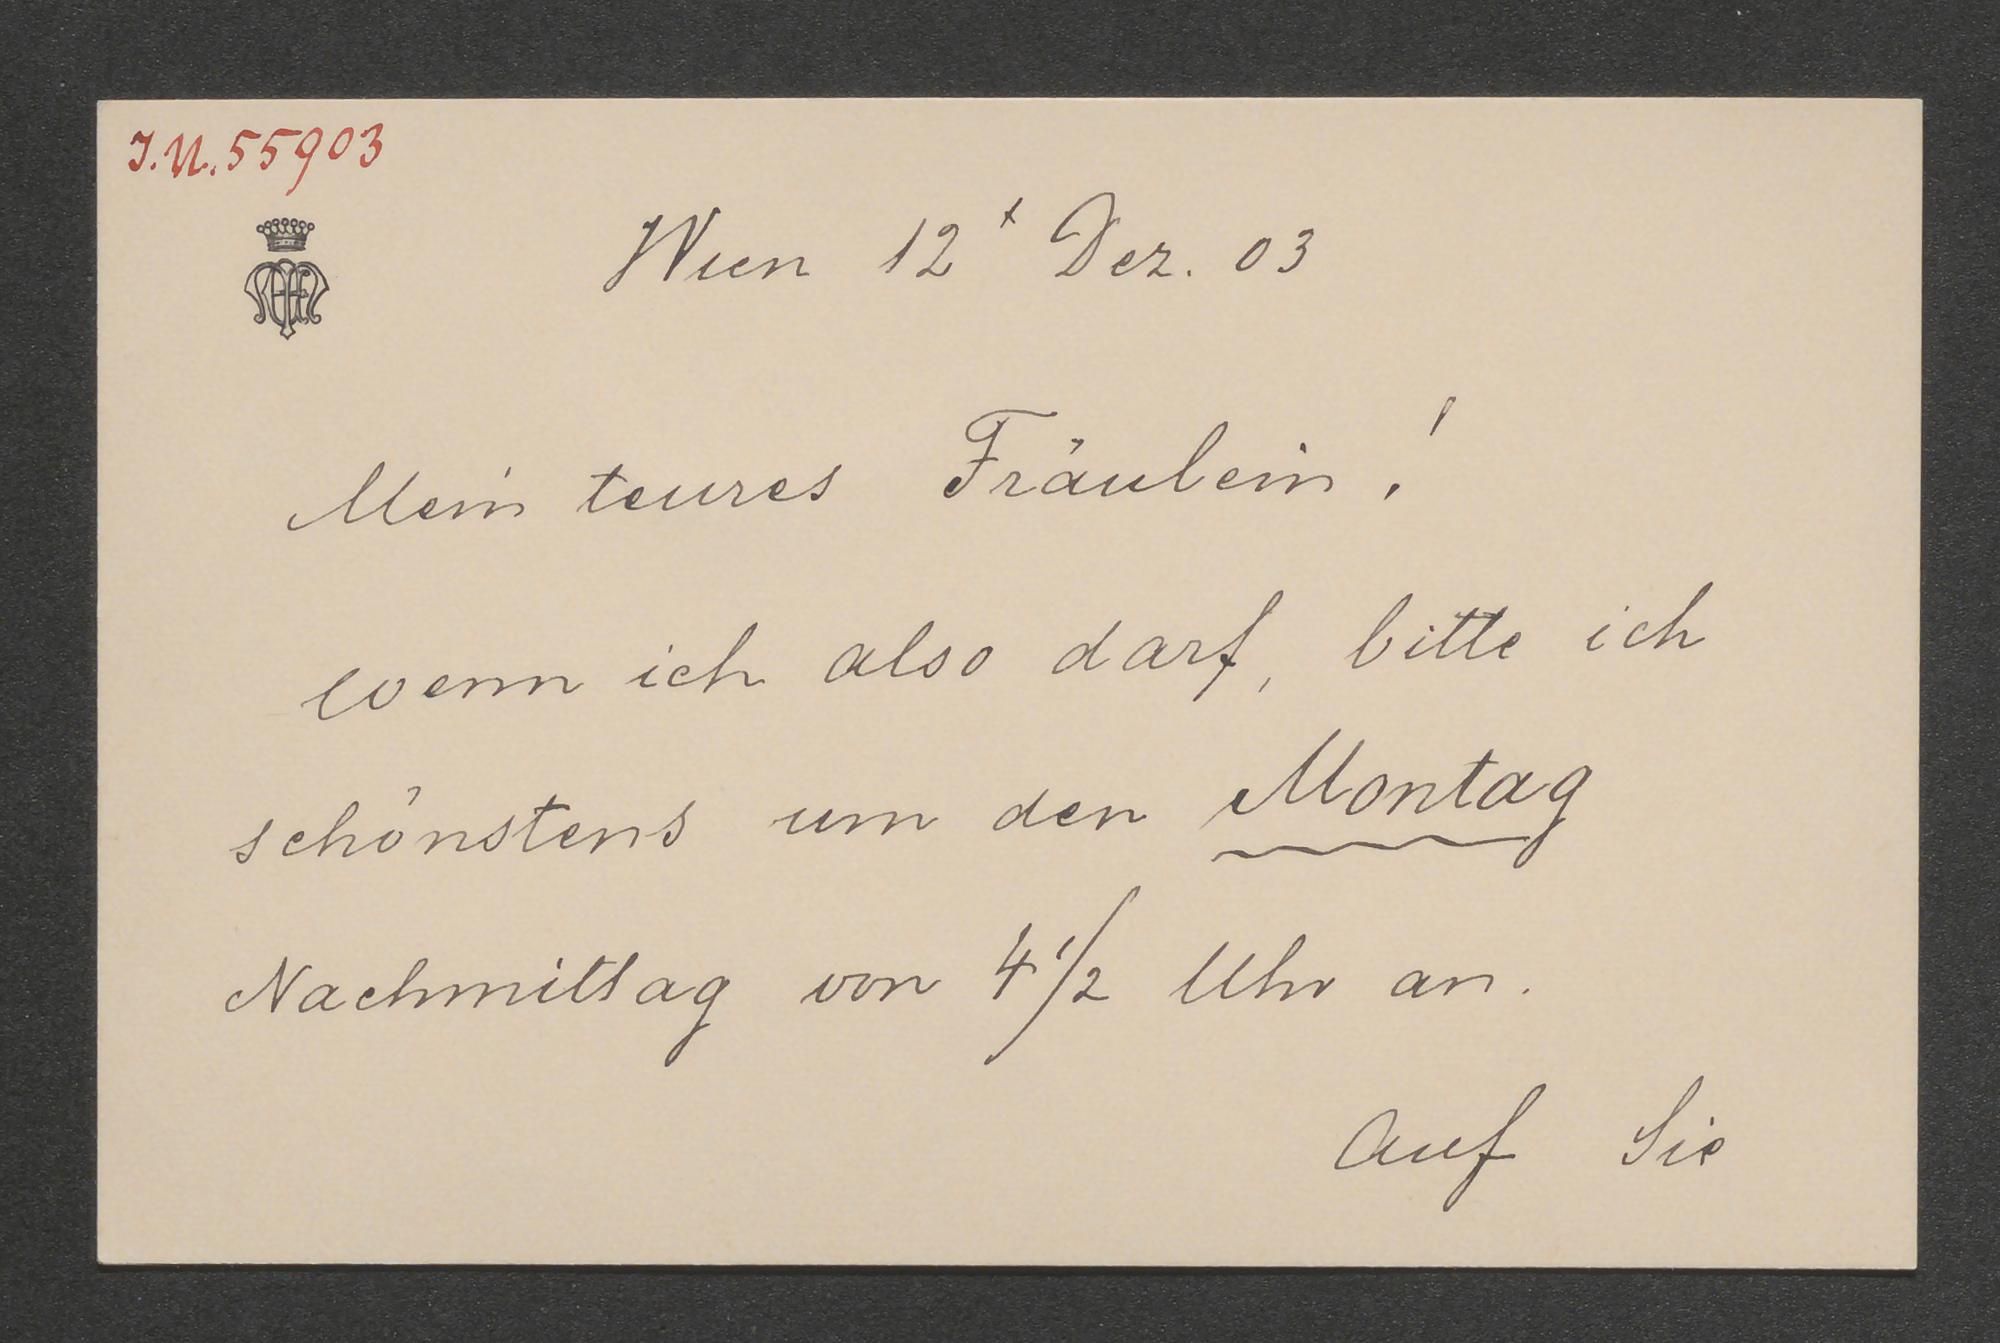 I.N. 55903
Wien 12t Dez. 03
Mein teures Fräulein!
wenn ich also darf, bitte ich
schönstens um den Montag
Nachmittag von 4 1/2 Uhr an.
Auf Sie